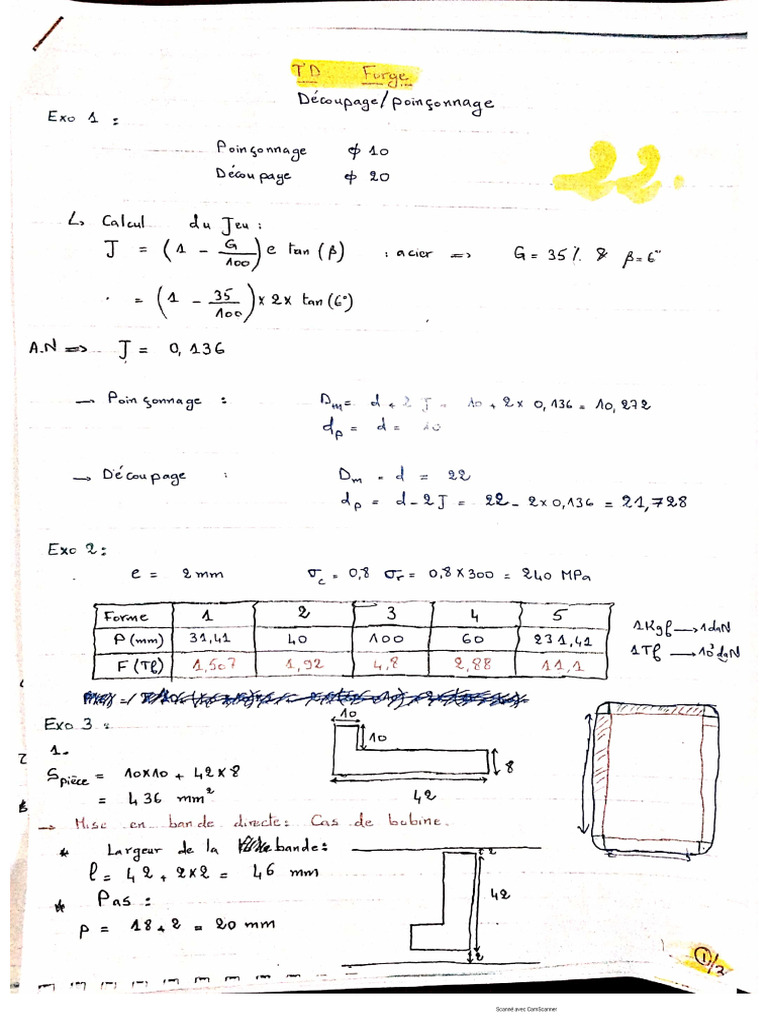 TD Forge
Découpage/poinçonnage
Exo 1 :
Poinçonnage ϕ 10
Découpage ϕ 20
22.
↳ Calcul du Jeu :
J = (1 - G/100) e tan (β) : acier => G = 35 % & β = 6°
= (1 - 35/100) x 2 x tan (6°)
A.N => J = 0,136
→ Poinçonnage : Dm = d + 2 J = 10 + 2 x 0,136 = 10,272
dp = d = 10
→ Découpage : Dm = d = 22
dp = d - 2J = 22 - 2 x 0,136 = 21,728
Exo 2 :
e = 2 mm σc = 0,8 σr = 0,8 x 300 = 240 MPa
Forme 1 2 3 4 5
P (mm) 31,41 40 100 60 231,41
F (Tf) 1,507 1,92 4,8 2,88 11,1
1 Kgf → 1 daN
1 Tf → 10³ daN
Exo 3 :
10
10
8
42
1.
Spièce = 10x10 + 42 x 8
= 436 mm²
→ Mise en bande directe : Cas de bobine.
* Largeur de la bande :
l = 42 + 2x2 = 46 mm
* Pas :
p = 18 + 2 = 20 mm
2
42
2
1/2
Scanné avec CamScanner